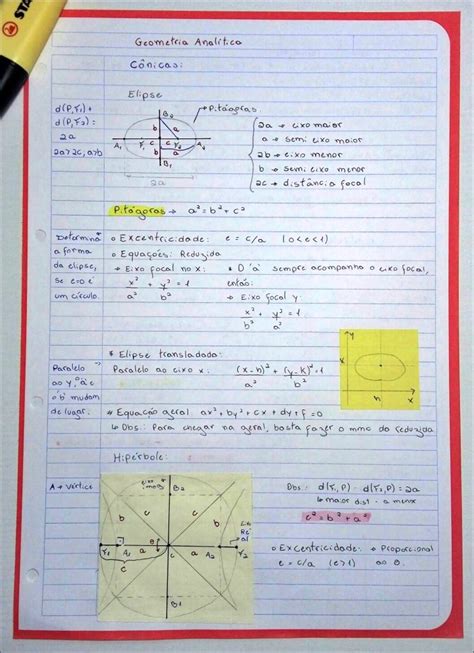 STA
Geometria Analítica
Cônicas:
Elipse
d(P,F1) +
d(P,F2) =
2a
2a > 2c, a>b
B2
→ Pitágoras
b
a
A1
F1
c
c
F2
A2
b
a
B1
2a
2a → eixo maior
a → semi eixo maior
2b → eixo menor
b → semi eixo menor
2c → distância focal
Pitágoras → a² = b² + c²
Determina
a forma
da elipse,
se e=0 é
um círculo.
o Excentricidade: e = c/a (0<e<1)
o Equações: Reduzida
→ Eixo focal no x:
x²/a² + y²/b² = 1
* O "a" sempre acompanha o eixo focal,
então:
→ Eixo focal y
x²/b² + y²/a² = 1
* Elipse transladada:
Paralelo ao eixo x: (x-h)²/a² + (y-k)²/b² = 1
Paralelo
ao y, "a" e
"b" mudam
de lugar.
y
k
h
x
* Equação geral: ax² + by² + cx + dy + f = 0
↳ Obs: Para chegar na geral, basta fazer o mmc da reduzida
Hipérbole:
A → Vértice
B2
b
c
c
b
F1
A1
a
θ
c
a
A2
F2
c
b
c
c
b
B1
Obs: d(F1,P) - d(F2,P) = 2a
↳ maior dist - a menor
c² = b² + a²
o Excentricidade:
e = c/a (e>1)
* Proporcional
ao θ.